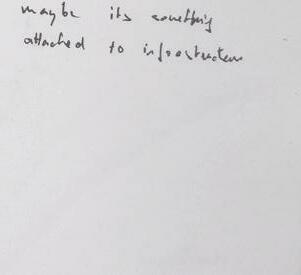 maybe its something
attached to infrastructure